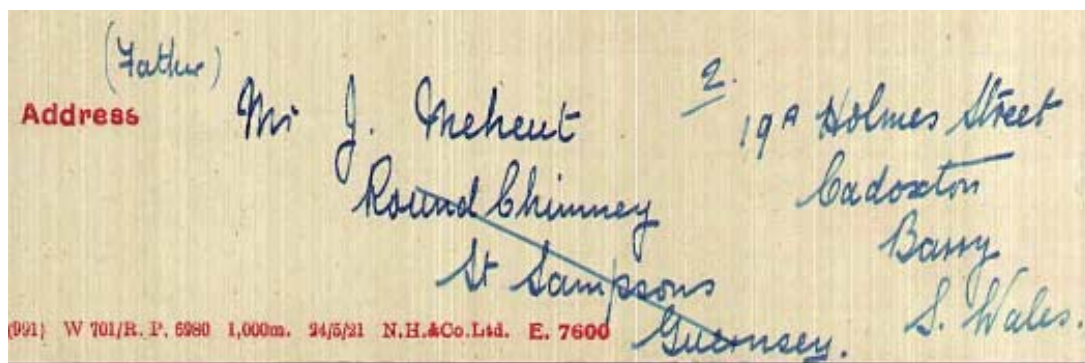 (Father)
Address
Mr J. Meheut
Round Chimney
St Sampsons
Guernsey.
2.
19A Holmes Street
Cadoxton
Barry
S. Wales.
(991) W 701/R. P. 6980 1,000m. 24/5/21 N.H.&Co.Ltd. E. 7600